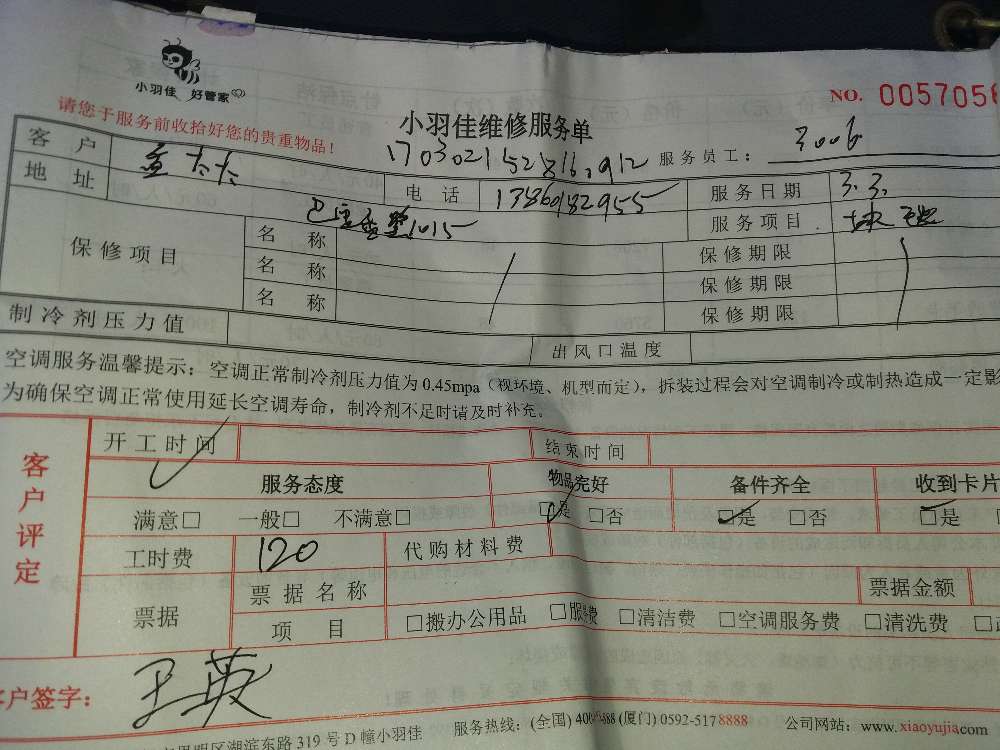 小羽佳 好管家
请您于服务前收拾好您的贵重物品！
NO. 0057058
小羽佳维修服务单
170302152816.912 服务员工： 3006
客户
地址
电话 13860182955 服务日期 3.3.
1015 服务项目
保修项目 名称 保修期限
名称 保修期限
名称 保修期限
制冷剂压力值 出风口温度
空调服务温馨提示：空调正常制冷剂压力值为 0.45mpa（视环境、机型而定），拆装过程会对空调制冷或制热造成一定影
为确保空调正常使用延长空调寿命，制冷剂不足时请及时补充。
客户评定
开工时间 结束时间
服务态度 物品完好 备件齐全 收到卡片
满意□ 一般□ 不满意□ □是 □否 □是 □否 □是
工时费 120 代购材料费
票据 票据名称 票据金额
项目 □搬办公用品 □服务费 □清洁费 □空调服务费 □清洗费
客户签字： 王英
思明区湖滨东路 319 号 D 幢小羽佳 服务热线：(全国) (厦门) 0592-5178888 公司网站：www.xiaoyujia.com